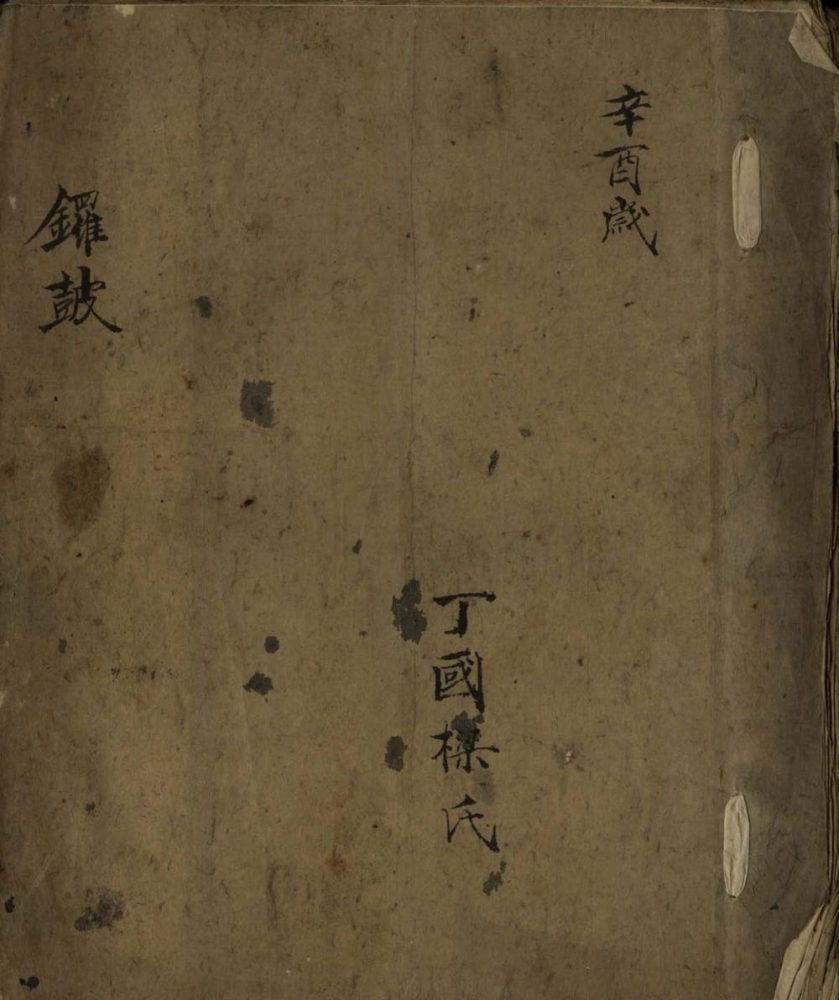 辛酉歲
丁國樑氏
鑼鼓